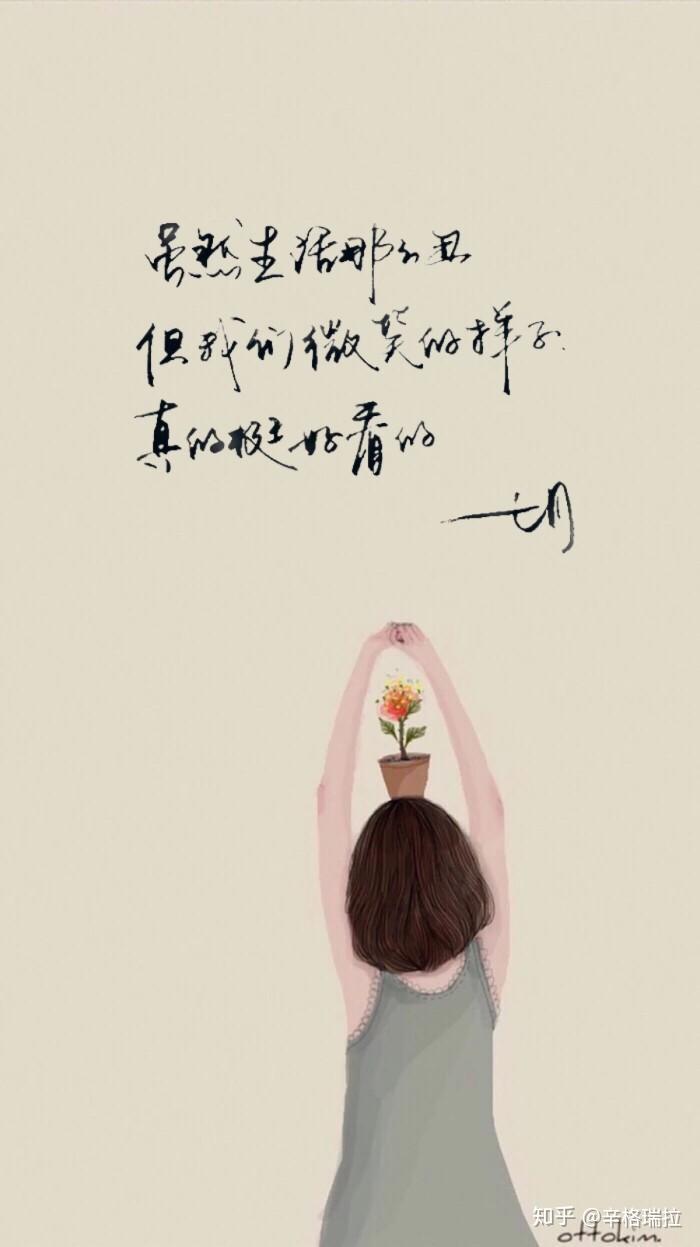 虽然生活那么丑
但我们微笑的样子
真的挺好看的
一七月
知乎 @辛格瑞拉
ottokim